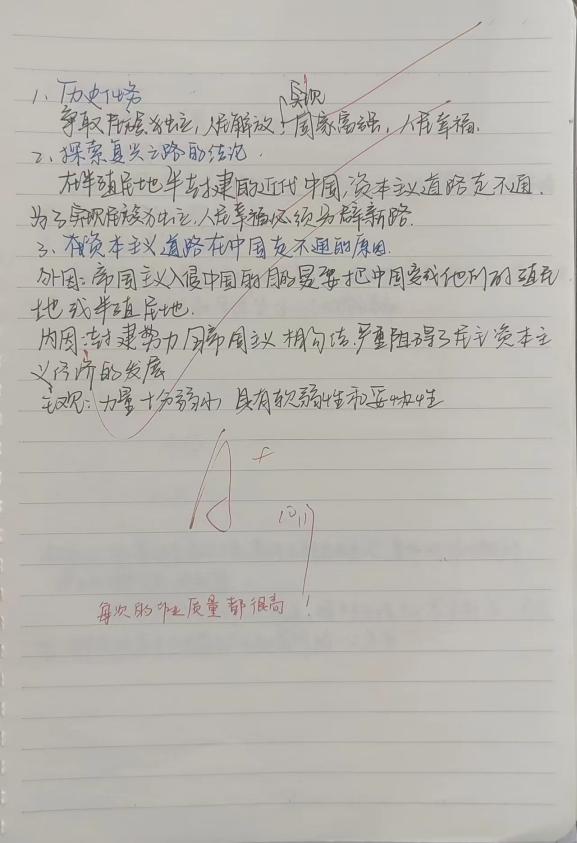 1、历史任务
实现
争取民族独立，人民解放；国家富强，人民幸福.
2、探索复兴之路的结论.
在半殖民地半封建的近代中国，资本主义道路走不通.
为了实现民族独立，人民幸福必须另辟新路.
3、资本主义道路在中国走不通的原因.
外因：帝国主义入侵中国的目的是要把中国变成他们的殖民
地或半殖民地.
内因：封建势力同帝国主义相勾结，严重阻碍了民主资本主
义经济的发展
主观：力量十分弱小，具有软弱性和妥协性
A+
10,11
每次的作业质量都很高！